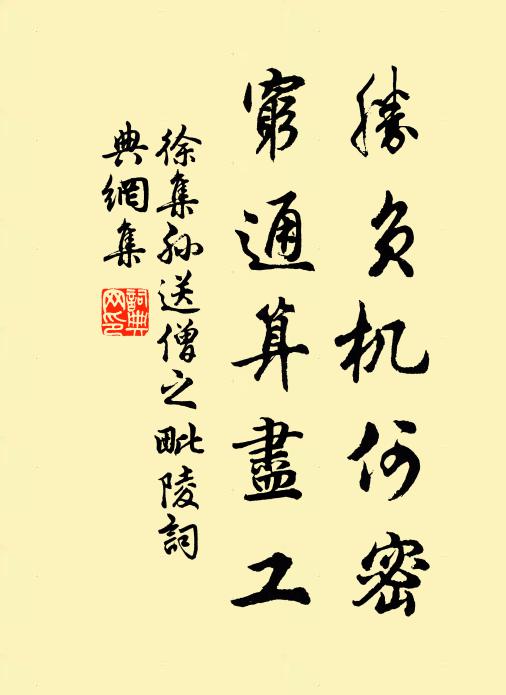 勝负机何密
窮通算盡工
徐集孙送僧之毗陵詞
典網集
詞典网印